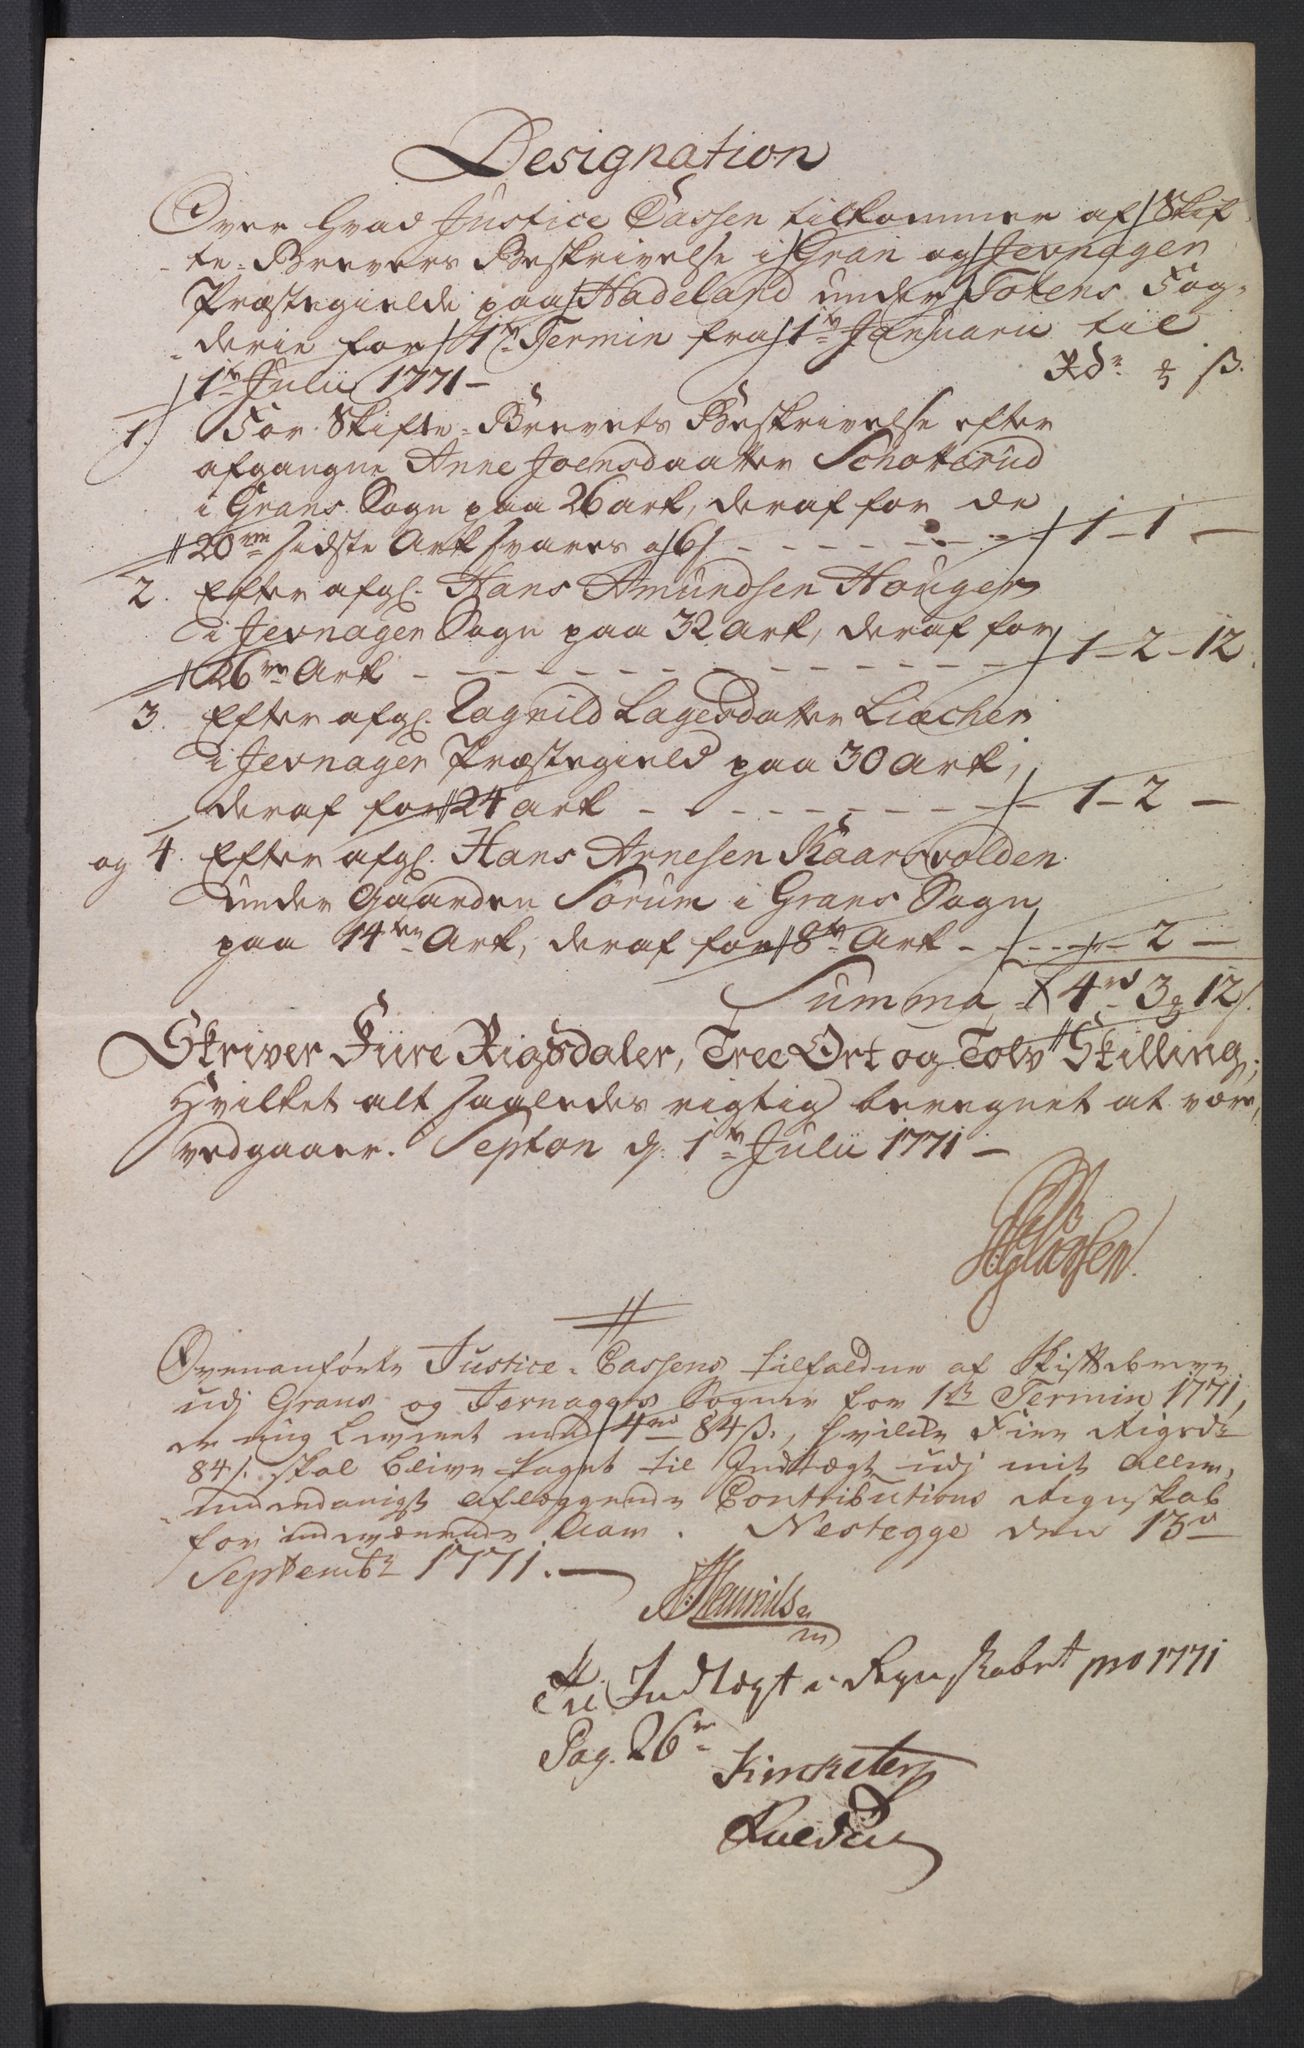 Designation
Over hvad Justice Cassen tilkommer af Skif
te-Brevers Beskrivelse i Gran og Jevnager
Præstegielde paa Hadeland under Totens Fog-
derie for 1te Termin fra 1te Januarii til
1te Julii 1771 — Rdr ß.
1. For Skifte-Brevets Beskrivelse efter
afgangne Anne Joensdaatter Schotterud
i Grans Sogn paa 26 Ark, deraf for de
20ve sidste Ark svares a 6 s - - - - 1 - 1 -
2. Efter afgl. Hans Amundsen Hougen
i Jevnager Sogn paa 32 Ark, deraf for
26ve Ark - - - - 1 - 2 - 12.
3. Efter afgl. Ragnild Lagesdatter Liæchen
i Jevnager Præstegield paa 30 Ark,
deraf for 24 Ark - - - - 1 - 2 -
og 4. Efter afgl. Hans Arnesen Kaarsvolden
under Gaarden Sørum i Grans Sogn
paa 14ten Ark, deraf for 8te Ark - - - - 2 -
Summa 4rd 3 12 s.
Skriver Fiire Rigsdaler, Tree Ort og Tolv Skilling;
Hvilket alt saaledes rigtig beregnet at være,
vedgaaer. Septon d. 1te Julii 1771 —
Ovenanførte Justice-Cassens tilfaldne af Skifttebreve
udj Grans og Jevnagers Sogner for 1te Termin 1771,
er mig Leveret med 4rd 84 ß., hvilke Fire Rigsdr
84 s. skal blive taget til Indtægt udj mit aller-
underdanigst aflæggende Contributions Regnskab
for indeværende Aar. Nestegge den 13de
Septembr 1771. —
Til Indtægt i Regnskabet pro 1771
Pag. 26